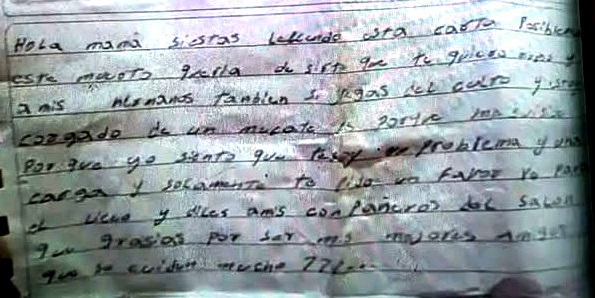 Hola mamá siestas lellendo esta carta Posiblem
este muerto queria desirte que te quiero mas y
a mis hermanos tanbien si llegas del culto y estoy
corgado de un mecate es porque
Por que yo siento que soy un problema y una
carga y solamente te pido un Favor ve para
el liceo y diles amis conpañeros del Salon
que grasias por ser mis mejores amigos
que se cuiden mucho